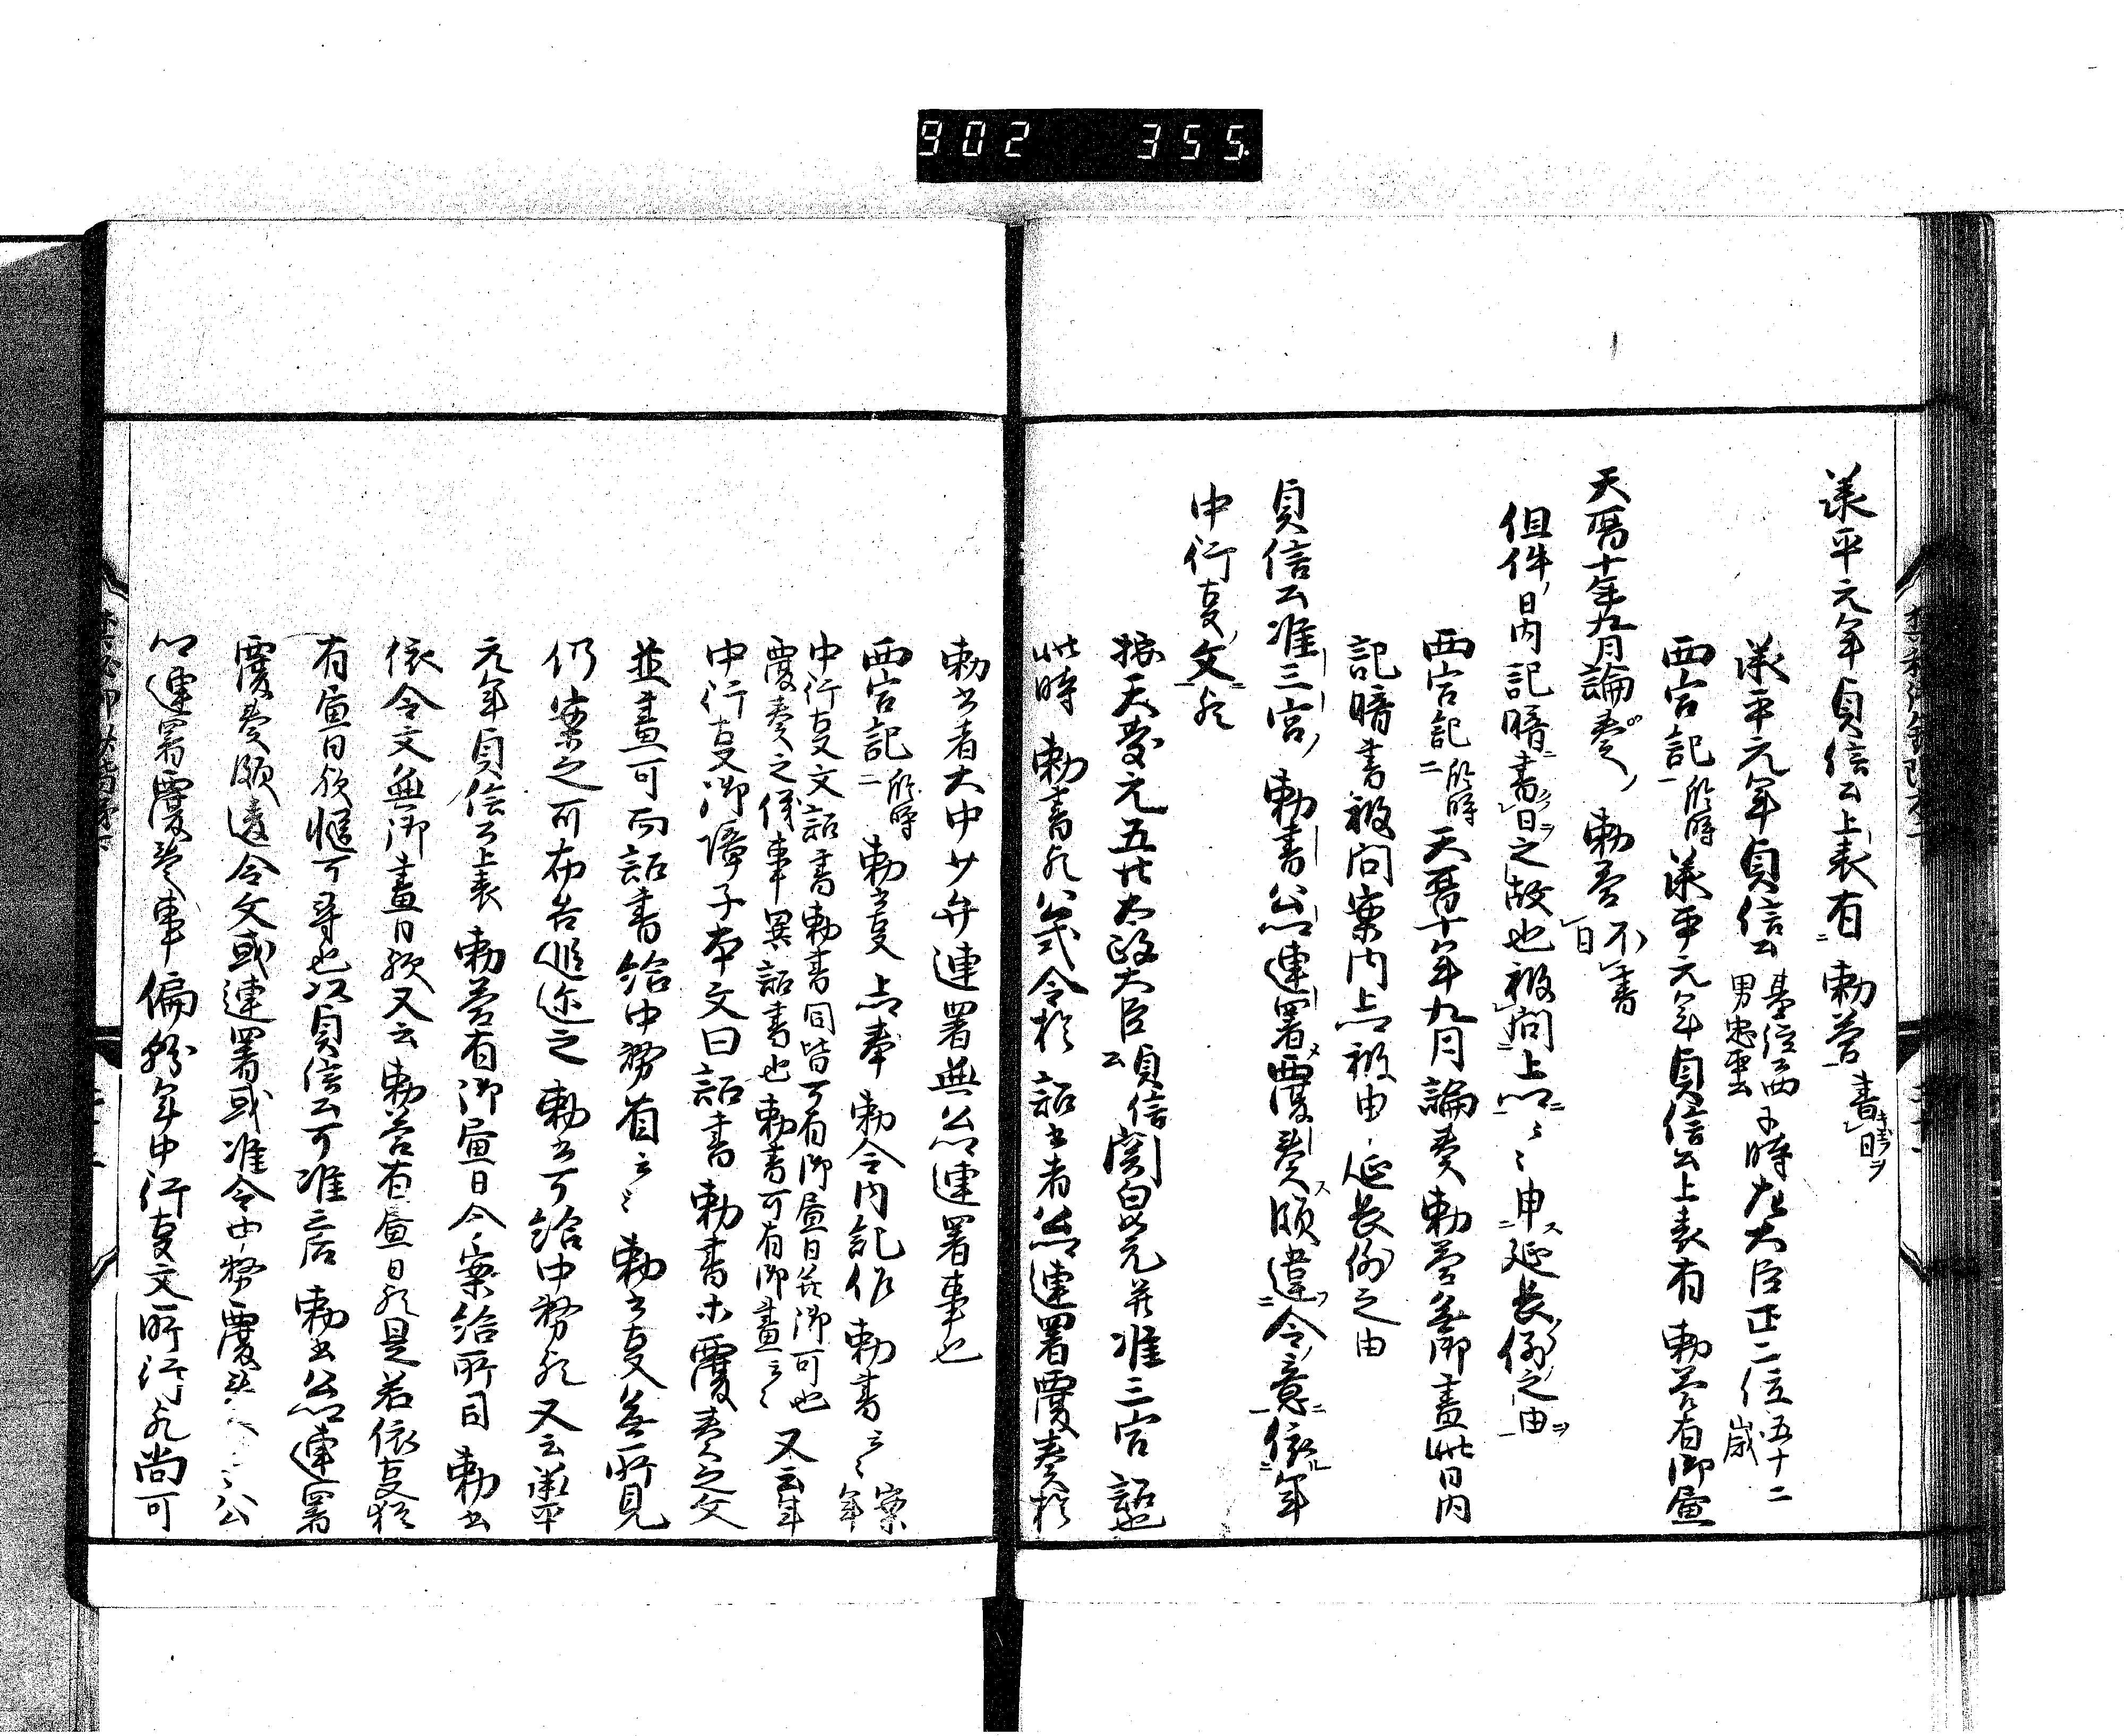 902 355.
承平元年貞信公上表有勅答書日ヲ
承平元年貞信公基経公四男忠平公于時左大臣正二位五十二歳
西宮記臨時一承平元年貞信公上表有勅答有御畫
天暦十年九月論奏勅答不書日
但件日内記暗書日之故也被問上卿々々申延長例之由
西宮記臨時二天暦十年九月論奏勅答無御畫此日内
記暗書被問案内上卿被申延長例之由
貞信公准三宮勅書公卿連署覆奏頗違令意依年
中行事文歟
按天慶元五廿太政大臣貞信公関白如元并准三宮詔也
此時勅書歟公式令於詔書者公卿連署覆奏於
勅書者大中少弁連署無公卿連署事也
西宮記臨時二勅事上卿奉勅令内記作勅書云々案年
中行事文詔書勅書同皆可有御畫日并御可也
覆奏之儀事異詔書也勅書可有御畫云々又云年
中行事御障子本文曰詔書勅書等覆奏之文
並畫可而詔書給中務省云々勅書事無所見
仍案之可布告遐迩之勅書可給中務歟又云承平
元年貞信公上表勅答有御畫日今案給所司勅書
依令文無御畫日歟又云勅答有畫日歟是若依事軽
有畫日歟慥可尋也次貞信公可准三后勅書公卿連署
覆奏頗違令文或連署或准令中務覆奏云々公
卿連署覆奏事偏歟年中行事文所行歟尚可